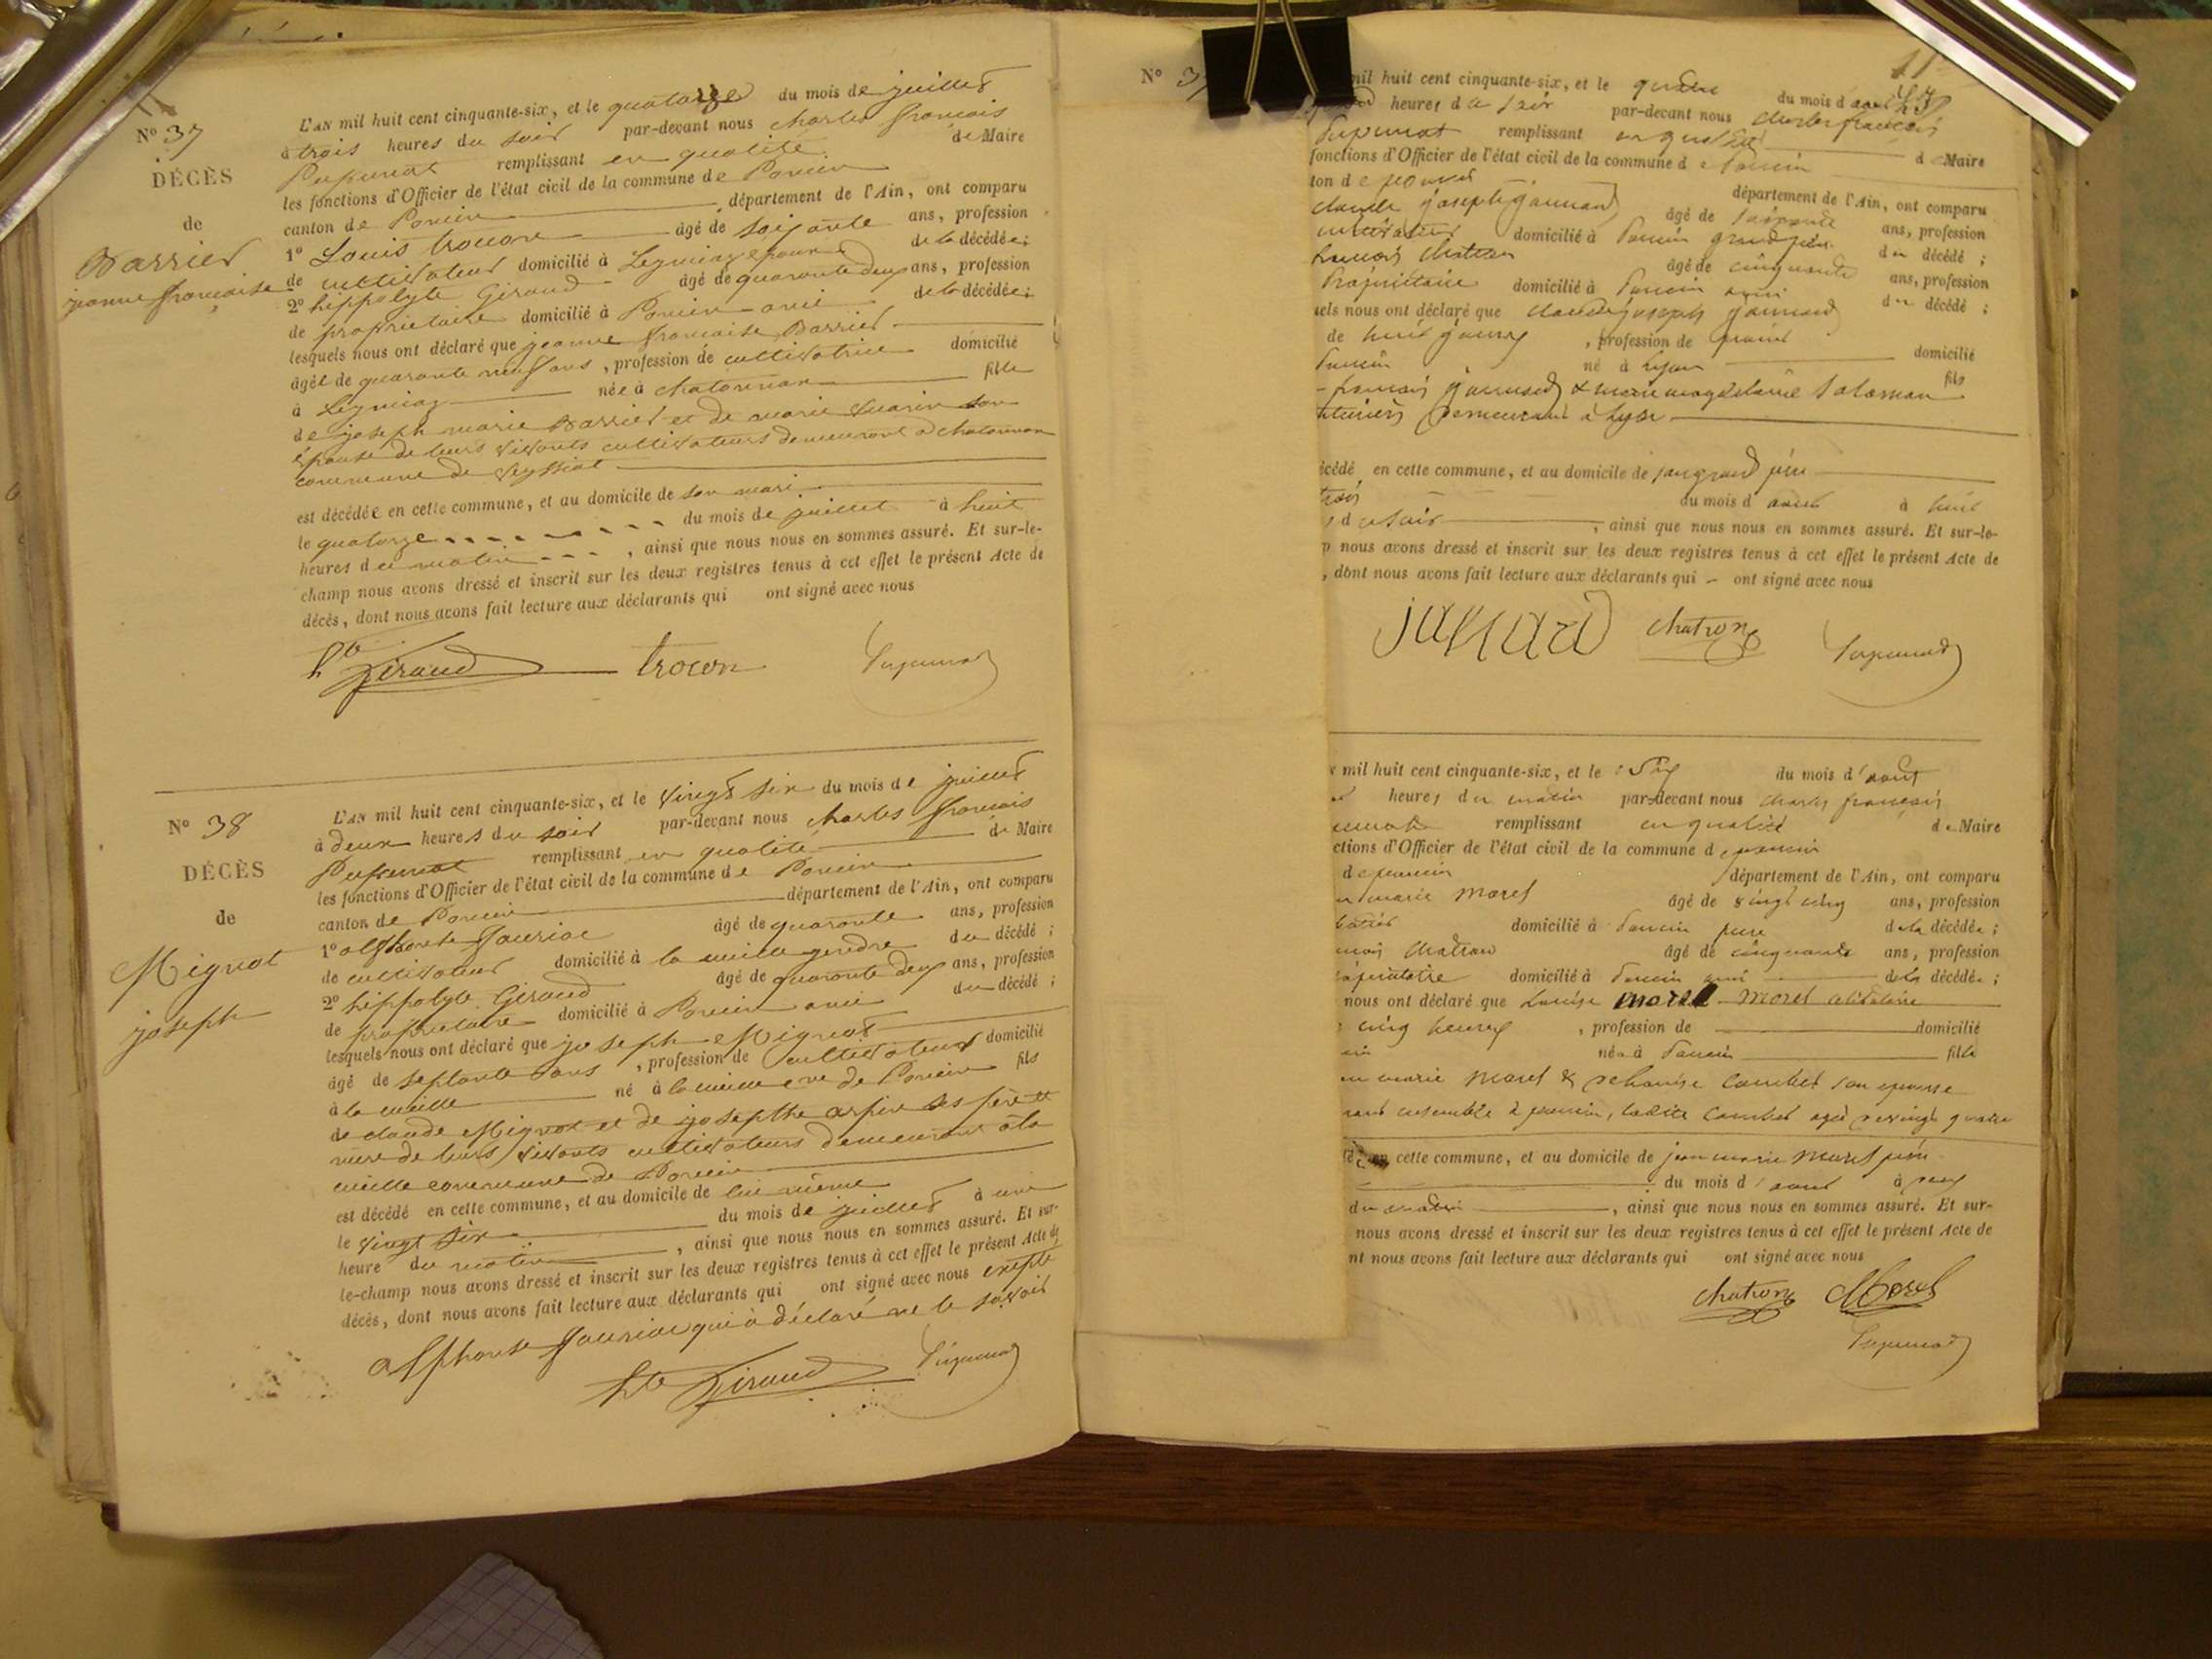 N° 37
DÉCÈS
de
Barrier
jeanne française
L'AN mil huit cent cinquante-six, et le quatorze du mois de juillet
à trois heures du soir par-devant nous charles françois
Pupunat remplissant en qualité de Maire
les fonctions d'Officier de l'état civil de la commune de Poncin
canton de Poncin département de l'Ain, ont comparu
1° Louis trocon âgé de soixante ans, profession
de cultivateur domicilié à Leymiaz époux de la décédée;
2° hippolyte Giraud âgé de quarante deux ans, profession
de propriétaire domicilié à Poncin ami de la décédée;
lesquels nous ont déclaré que jeanne francaise Barrier
âgée de quarante neuf ans, profession de cultivatrice domicilié
à Leymiaz née à chatonnax fille
de joseph marie Barrier et de marie son
épouse de leurs vivants cultivateurs demeurant à chatonnax
commune de
est décédée en cette commune, et au domicile de son mari
le quatorze du mois de juillet à huit
heures du matin, ainsi que nous nous en sommes assuré. Et sur-le-
champ nous avons dressé et inscrit sur les deux registres tenus à cet effet le présent Acte de
décès, dont nous avons fait lecture aux déclarants qui ont signé avec nous
hte Giraud trocon Pupunat
N° 38
DÉCÈS
de
Mignot
joseph
L'AN mil huit cent cinquante-six, et le vingt six du mois de juillet
à deux heures du soir par-devant nous charles francois
Pupunat remplissant en qualité de Maire
les fonctions d'Officier de l'état civil de la commune de Poncin
canton de Poncin département de l'Ain, ont comparu
1° alphonse Jauriac âgé de quarante ans, profession
de cultivateur domicilié à la cueille gendre du décédé;
2° hippolyte Giraud âgé de quarante deux ans, profession
de propriétaire domicilié à Poncin ami du décédé;
lesquels nous ont déclaré que joseph Mignot
âgé de septante ans, profession de cultivateur domicilié
à la cueille né à la cueille cne de Poncin fils
de claude Mignot et de josephte arpin ses père et
mère de leurs vivants cultivateurs demeurant à la
cueille commune de Poncin
est décédé en cette commune, et au domicile de lui même
le vingt six du mois de juillet à une
heure du matin, ainsi que nous nous en sommes assuré. Et sur-
le-champ nous avons dressé et inscrit sur les deux registres tenus à cet effet le présent Acte de
décès, dont nous avons fait lecture aux déclarants qui ont signé avec nous excepté
alphonse Jauriac qui à déclaré ne le savoir
hte Giraud Pupunat
N° 3
mil huit cent cinquante-six, et le du mois d'aout
heures du soir par-devant nous charles francois
Pupunat remplissant en qualité de Maire
fonctions d'Officier de l'état civil de la commune de Poncin
ton de poncin département de l'Ain, ont comparu
claude joseph âgé de soixante ans, profession
cultivateur domicilié à Poncin grand père du décédé;
francois chatron âgé de cinquante ans, profession
Propriétaire domicilié à Poncin ami du décédé;
uels nous ont déclaré que claude joseph
de huit jours, profession de domicilié
Poncin né à Lyon fils
francois & marie magdelaine
demeurant à Lyon
écédé en cette commune, et au domicile de son grand père
trois du mois d'aout à huit
du soir, ainsi que nous nous en sommes assuré. Et sur-le-
p nous avons dressé et inscrit sur les deux registres tenus à cet effet le présent Acte de
, dont nous avons fait lecture aux déclarants qui ont signé avec nous
chatron Pupunat
mil huit cent cinquante-six, et le six du mois d'aout
heures du matin par-devant nous charles françois
remplissant en qualité de Maire
ctions d'Officier de l'état civil de la commune de poncin
de poncin département de l'Ain, ont comparu
marie Morel âgé de vingt cinq ans, profession
domicilié à Poncin père de la décédée;
chatron âgé de cinquante ans, profession
domicilié à Poncin ami de la décédée;
nous ont déclaré que Louise Morel célibataire
cinq heures, profession de domicilié
née à Poncin fille
marie Morel & de Louise Combet son épouse
ensemble à poncin, ladite Combet agée de vingt quatre
cette commune, et au domicile de jean marie Morel père
du mois d'aout à
du matin, ainsi que nous nous en sommes assuré. Et sur-
nous avons dressé et inscrit sur les deux registres tenus à cet effet le présent Acte de
nt nous avons fait lecture aux déclarants qui ont signé avec nous
chatron Morel
Pupunat